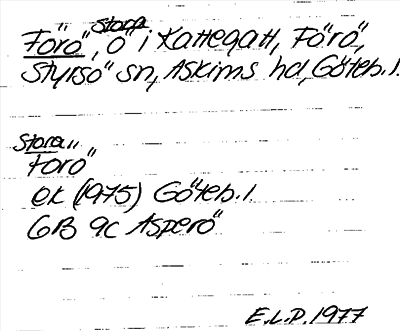 Stora
Förö, ö i Kattegatt, Förö,
Styrsö sn, Askims hd, Göteb. l.
Stora
Förö
ek (1975) Göteb. l
6B 9c Asperö
E.L.P. 1977